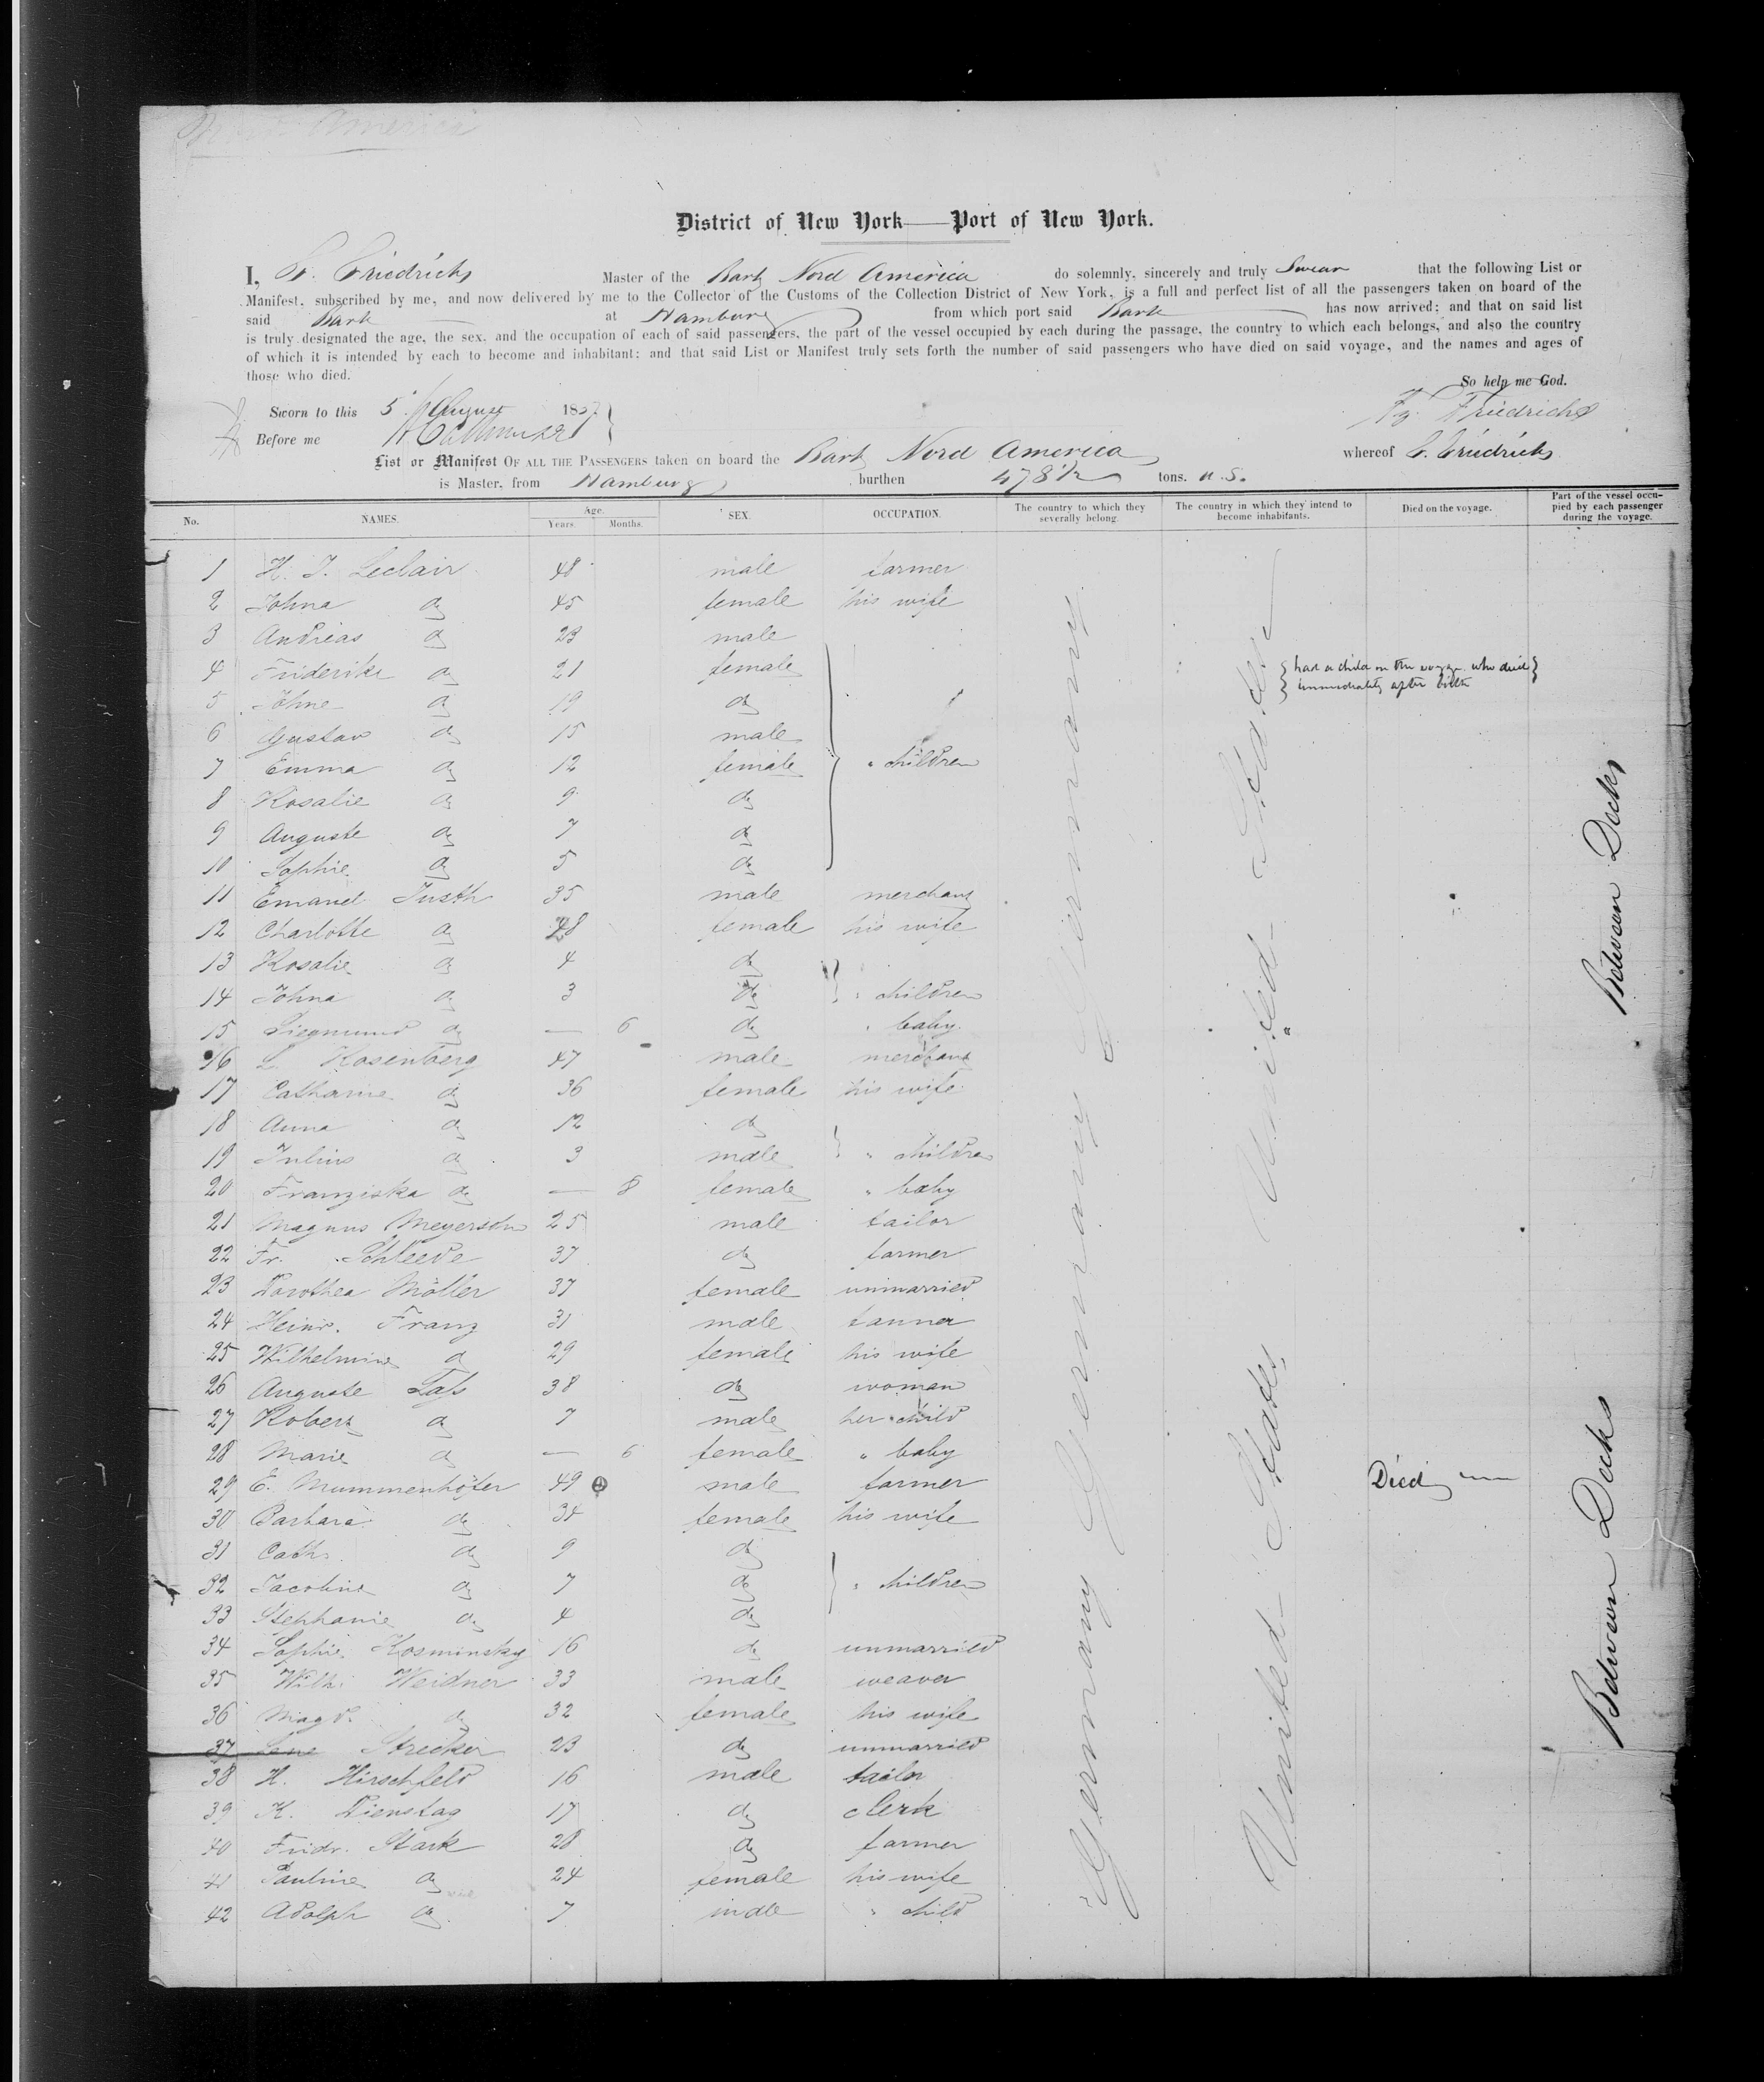 America
District of New York—Port of New York.
I, Friedrichs Master of the Bark Nord America do solemnly, sincerely and truly Swear that the following List or
Manifest, subscribed by me, and now delivered by me to the Collector of the Customs of the Collection District of New York, is a full and perfect list of all the passengers taken on board of the
said Bark at Hamburg from which port said Bark has now arrived; and that on said list
is truly designated the age, the sex, and the occupation of each of said passengers, the part of the vessel occupied by each during the passage, the country to which each belongs, and also the country
of which it is intended by each to become and inhabitant; and that said List or Manifest truly sets forth the number of said passengers who have died on said voyage, and the names and ages of
those who died.
So help me God.
Sworn to this 5 August 1857 Friedrichs
Before me
List or Manifest OF ALL THE PASSENGERS taken on board the Bark Nord America whereof Friedrichs
is Master, from Hamburg burthen 478 1/2 tons. u. S.
No. NAMES. Age. Years. Months. SEX. OCCUPATION. The country to which they severally belong. The country in which they intend to become inhabitants. Died on the voyage. Part of the vessel occupied by each passenger during the voyage.
1 H. J. Leclair 48 male farmer
2 Johna do 45 female his wife
3 Andreas do 23 male
4 Friderike do 21 female { had a child on the voyage who died immediately after birth }
5 Johne do 19 do
6 Gustav do 15 male
7 Emma do 12 female " children
8 Rosalie do 9 do
9 Auguste do 7 do
10 Sophie do 5 do
11 Emanuel Justh 35 male merchant
12 Charlotte do 28 female his wife
13 Rosalie do 4 do
14 Johna do 3 do " children
15 Siegmund do — 6 do " baby
16 L. Rosenberg 47 male merchant
17 Catharine do 36 female his wife
18 Anna do 12 do
19 Julius do 3 male " children
20 Franziska do — 8 female " baby
21 Magnus Meyersohn 25 male tailor
22 Fr. Schleede 37 do farmer
23 Dorothea Möller 37 female unmarried
24 Heinr. Franz 31 male tanner
25 Wilhelmine do 29 female his wife
26 Auguste Lass 38 do woman
27 Robert do 7 male her child
28 Marie do — 6 female " baby
29 E. Mummenhöfer 49 male farmer Died
30 Barbara do 34 female his wife
31 Cath. do 9 do
32 Jacobine do 7 do " children
33 Stephanie do 4 do
34 Sophie Kosminsky 16 do unmarried
35 Wilh. Weidner 33 male weaver
36 Magd. do 32 female his wife
37 Lene Strecker 23 do unmarried
38 H. Hirschfeld 16 male tailor
39 K. Dienstag 17 do clerk
40 Fridr. Stark 28 do farmer
41 Pauline do 24 female his wife
42 Adolph do 7 male " child
Germany Germany Germany
United States
United States
Between Decks
Between Decks